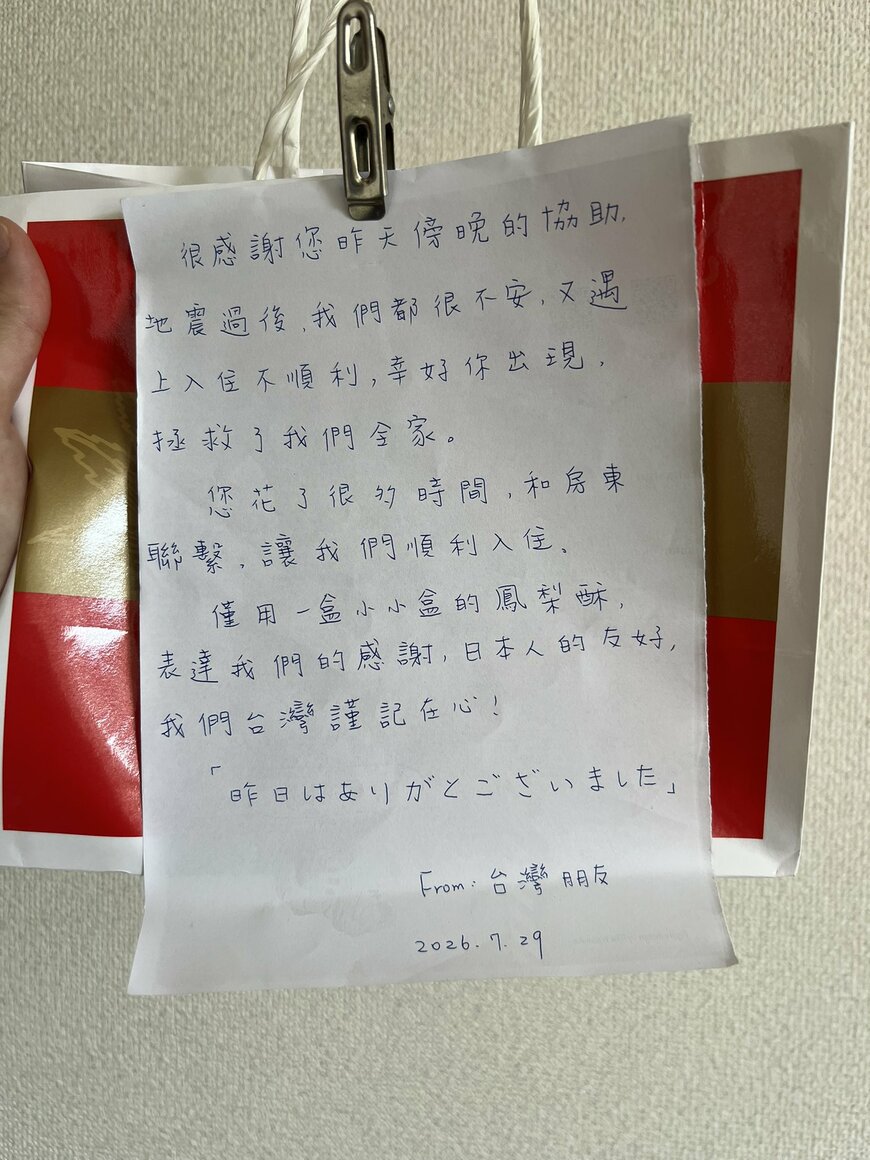 很感謝您昨天傍晚的協助,
地震過後,我們都很不安,又遇
上入住不順利,幸好你出現,
拯救了我們全家。
您花了很多時間,和房東
聯繫,讓我們順利入住。
僅用一盒小小盒的鳳梨酥,
表達我們的感謝,日本人的友好,
我們台灣謹記在心!
「昨日はありがとございました」
From: 台灣朋友
2026.7.29